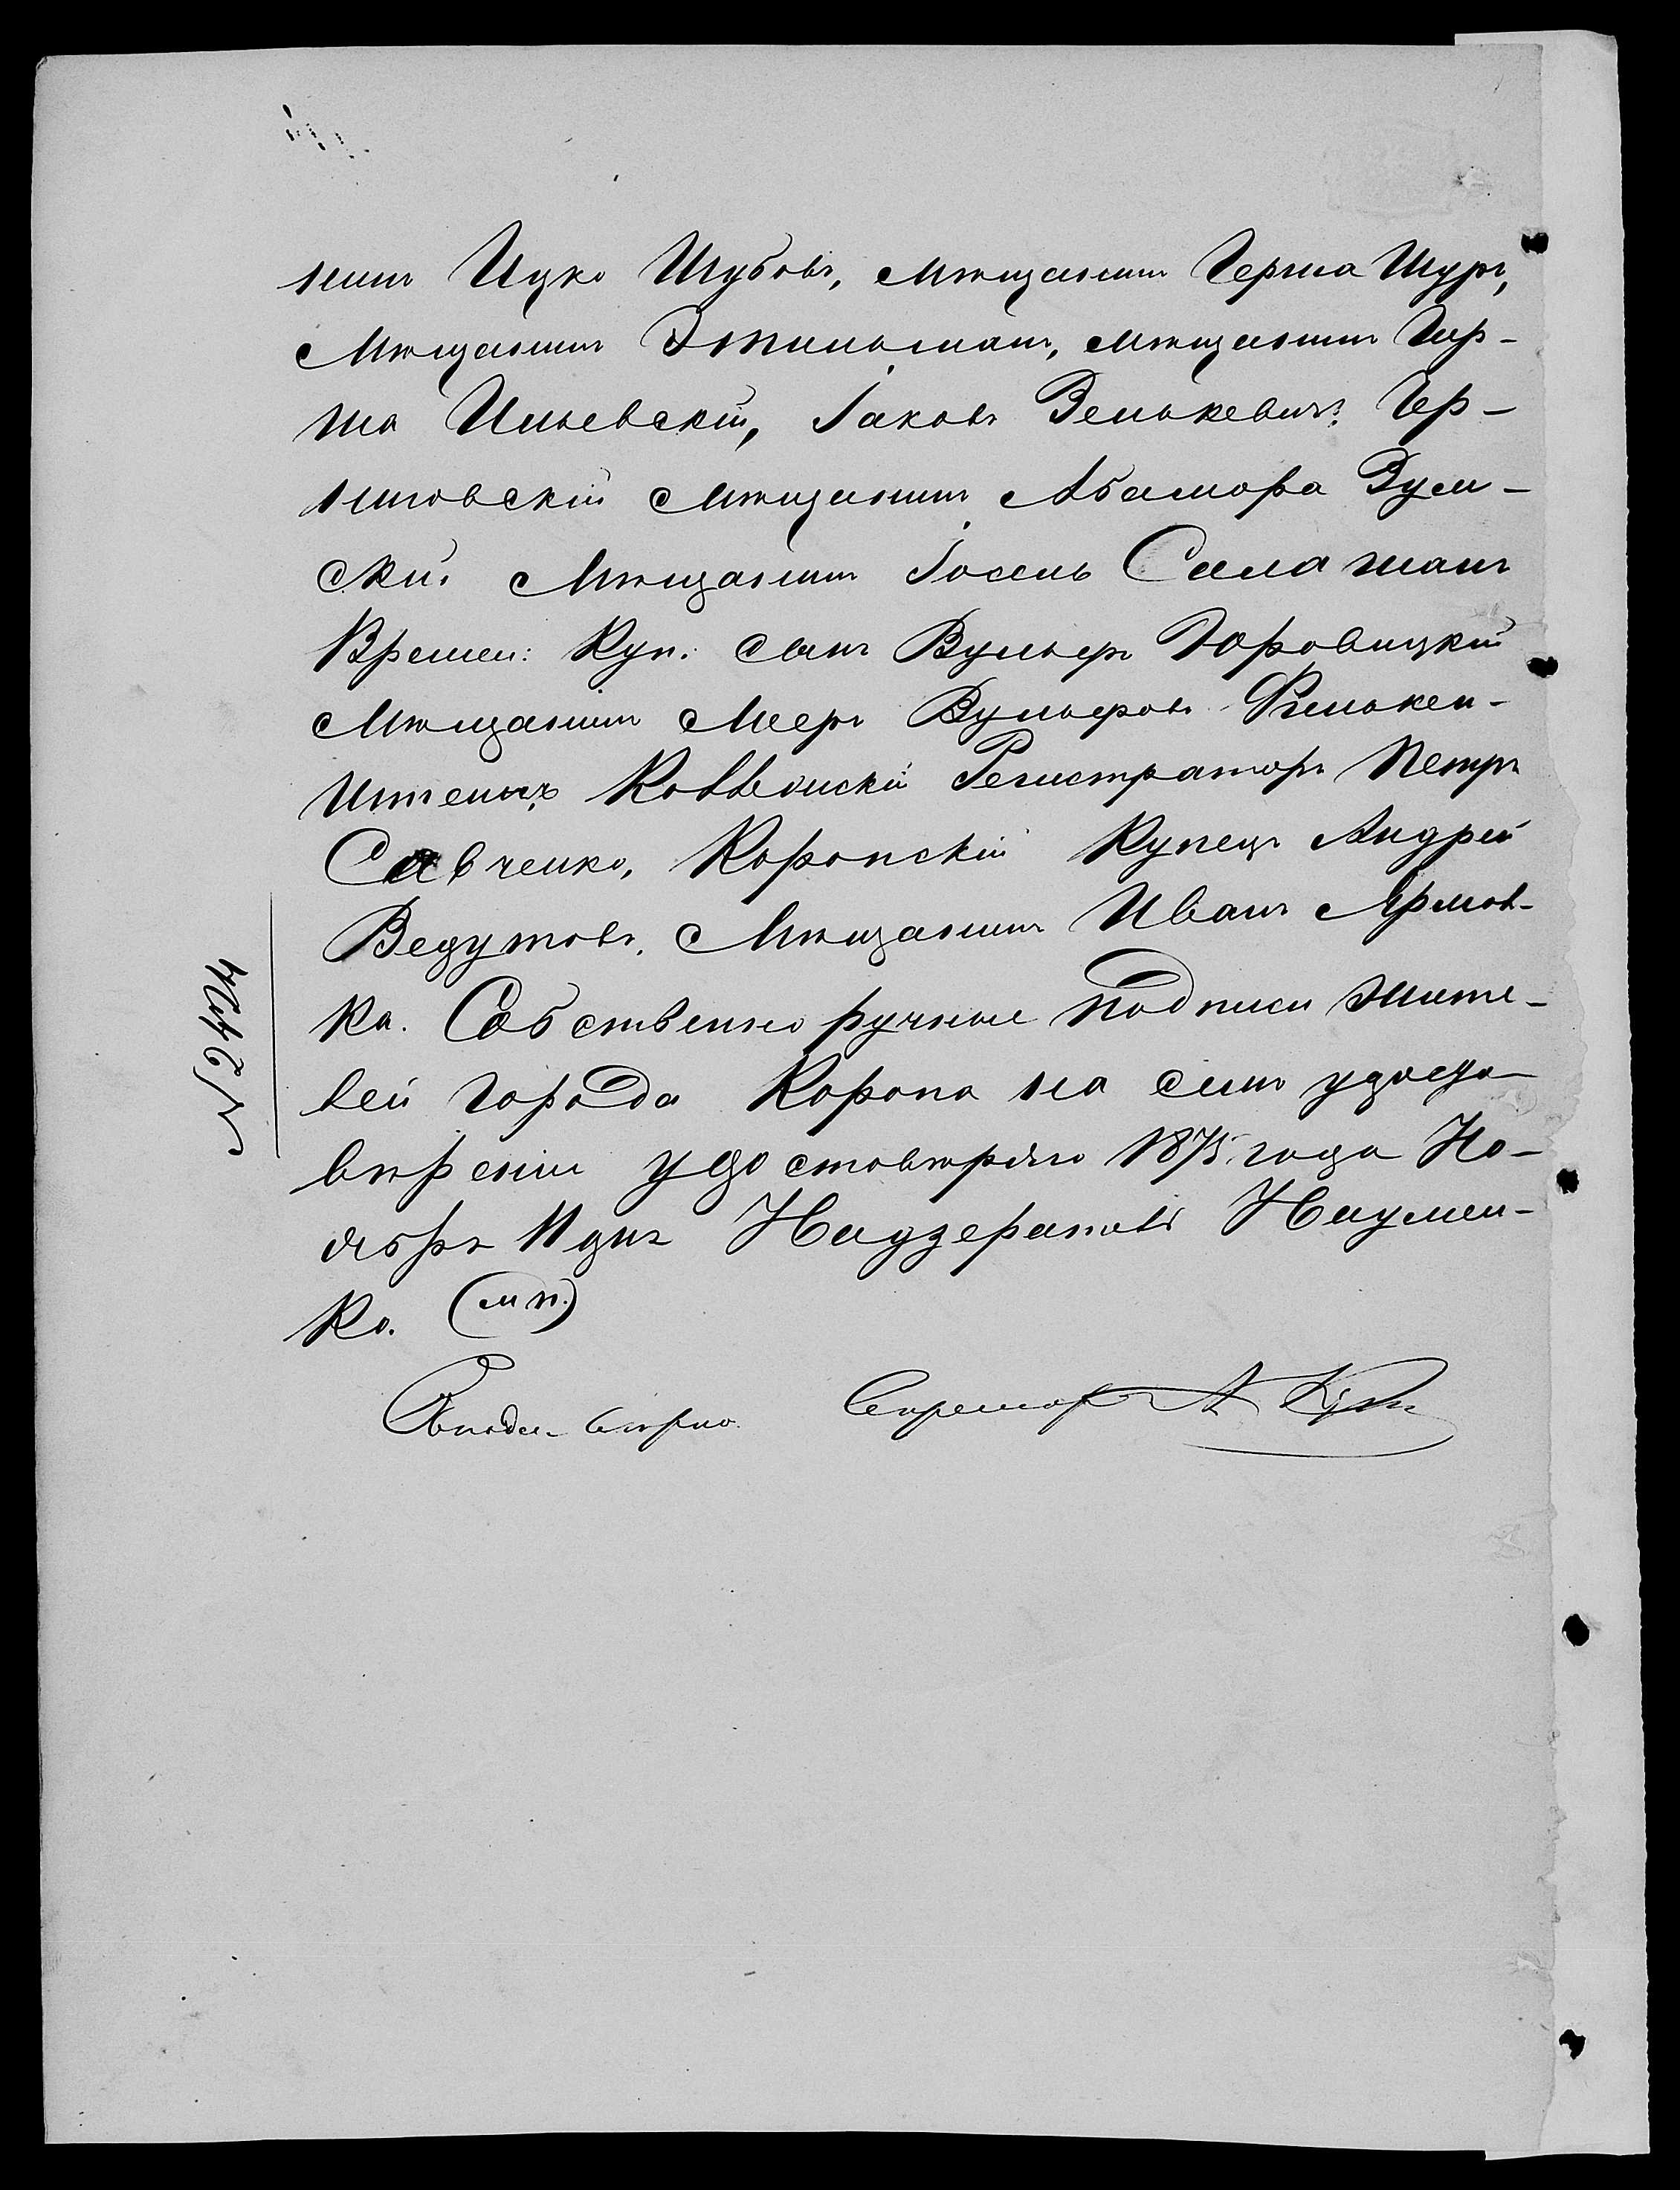 нинъ Ицко Шубовъ, Мѣщанинъ Герша Шуръ,
Мѣщанинъ Этинсманъ, Мѣщанинъ Гер-
ша Ильевскій, Іаковъ Зелькевичъ, Чер-
ниговскій Мѣщанинъ Зум-
скій Мѣщанинъ Іосель
Времен: Куп. сынъ Вульфъ Юровицкій
Мѣщанинъ Мееръ Вульфовъ Финкен-
штенъ, Коллежскій Регистраторъ Петръ
Савченко, Коропскій Купецъ Андрей
Ведутовъ, Мѣщанинъ Иванъ Ярмов-
ка. Собственно ручные подписи жите-
лей города Коропа на семъ удосто-
вѣреніи удостовѣряю 1875 года Но-
ября 11 дня Надзератель Наумен-
ко. (м п.)
Съ подл. вѣрно. Секретарь А.
№ 2474